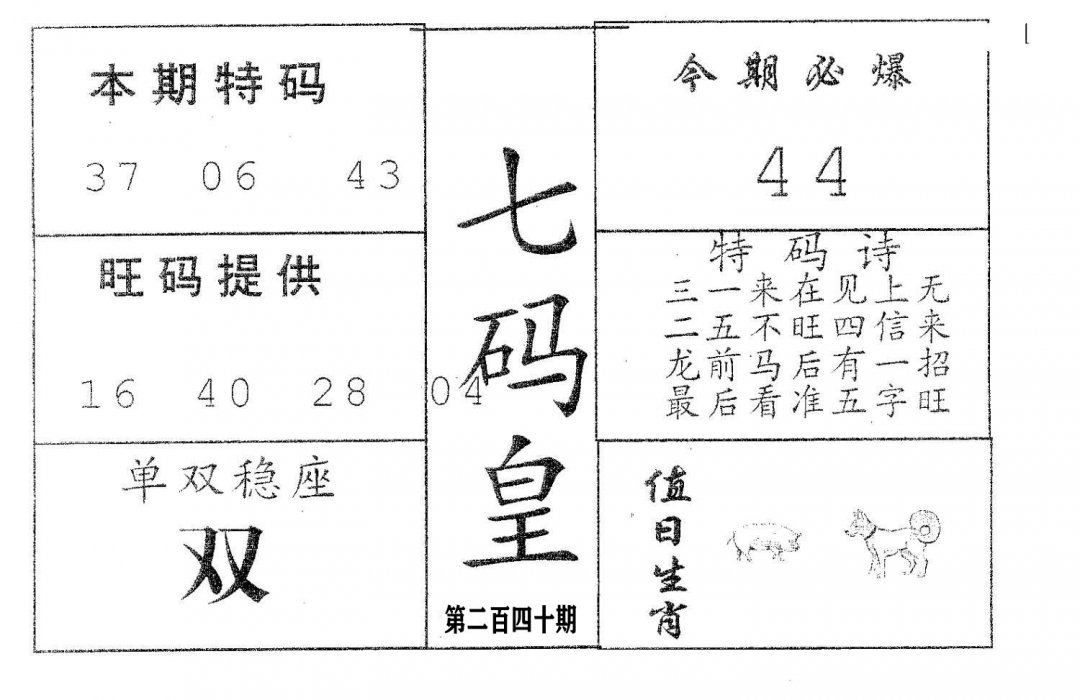 本期特码
37 06 43
旺码提供
16 40 28 04
单双稳座
双
七码皇
第二百四十期
今期必爆
44
特码诗
三一来在见上无
二五不旺四信来
龙前马后有一招
最后看准五字旺
值日生肖